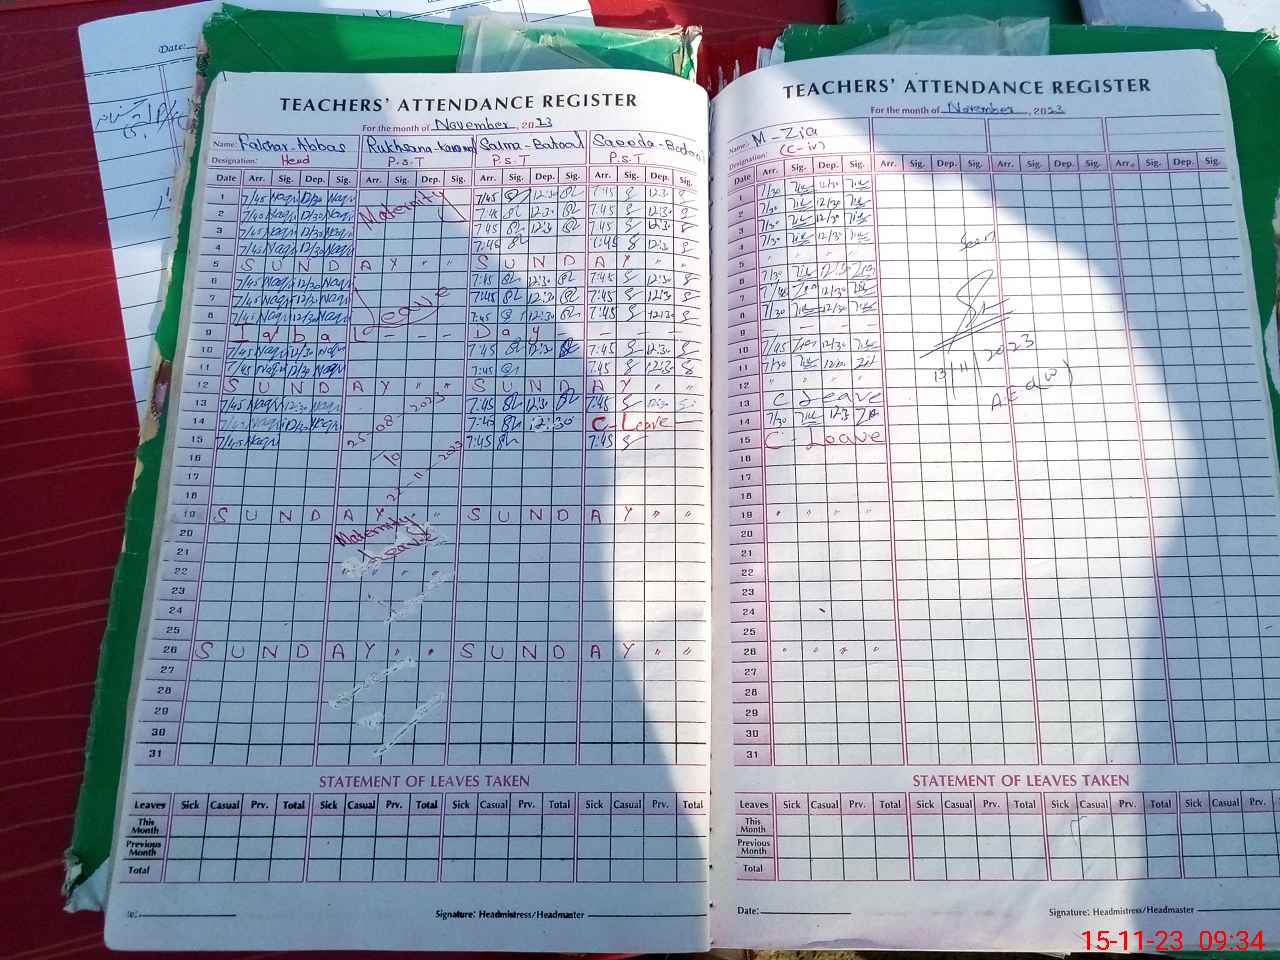 Date:
TEACHERS' ATTENDANCE REGISTER
For the month of November, 2023
Name: Fakhar-Abbas Rukhsana- Salma-Batool Saeeda-Batool
Designation: Head P.S.T P.S.T P.S.T
Date Arr. Sig. Dep. Sig. Arr. Sig. Dep. Sig. Arr. Sig. Dep. Sig. Arr. Sig. Dep. Sig.
1 7/45 12/30 Maternity 7/45 12:30 7:45 12:30
2 7/40 12/30 7:45 12:30 7:45 12:30
3 7/45 12/30 7:45 12:30 7:45 12:30
4 7/45 12/30 7:45 7:45 12:30
5 S U N D A Y " " S U N D A Y " "
6 7/45 12/30 7:45 12:30 7:45 12:30
7 7/45 12/30 Leave 7:45 12:30 7:45 12:30
8 7/45 12/30 7:45 12:30 7:45 12:30
9 I q b a l - - - D a y - - - - -
10 7/45 12/30 7:45 12:30 7:45 12:30
11 7/45 12/30 7:45 7:45 12:30
12 S U N D A Y " " S U N D A Y " "
13 7/45 12:30 25-08-2023 7:45 12:30 7:45 12:30
14 7/45 12/30 to 7:45 12:30 C-Leave
15 7/45 22-11-2023 7:45 7:45
16
17
18
19 S U N D A Y " " S U N D A Y " "
20 Maternity
21 Leave
22
23
24
25
26 S U N D A Y " " S U N D A Y " "
27
28
29
30
31
STATEMENT OF LEAVES TAKEN
Leaves Sick Casual Prv. Total Sick Casual Prv. Total Sick Casual Prv. Total Sick Casual Prv. Total
This Month
Previous Month
Total
Signature: Headmistress/Headmaster
TEACHERS' ATTENDANCE REGISTER
For the month of November, 2023
Name: M-Zia
Designation: (C-iv)
Date Arr. Sig. Dep. Sig. Arr. Sig. Dep. Sig. Arr. Sig. Dep. Sig. Arr. Sig. Dep. Sig.
1 7/30 Zia 12/30 Zia
2 7/30 Zia 12/30 Zia
3 7/30 Zia 12/30 Zia
4 7/30 Zia 12/30 Zia Seen
5 " " " "
6 7/30 Zia 12:30 Zia
7 7/45 Zia 12/30 Zia
8 7/30 Zia 12/30 Zia
9 - - - -
10 7/45 Zia 12/30 Zia
11 7/30 Zia 12/30 Zia 13/11/2023
12 " " " "
13 C Leave AEO(W)
14 7/30 Zia 12:30 Zia
15 C - Leave
16
17
18
19 " " " "
20
21
22
23
24
25
26 " " " "
27
28
29
30
31
STATEMENT OF LEAVES TAKEN
Leaves Sick Casual Prv. Total Sick Casual Prv. Total Sick Casual Prv. Total Sick Casual Prv.
This Month
Previous Month
Total
Date: Signature: Headmistress/Headmaster
15-11-23 09:34